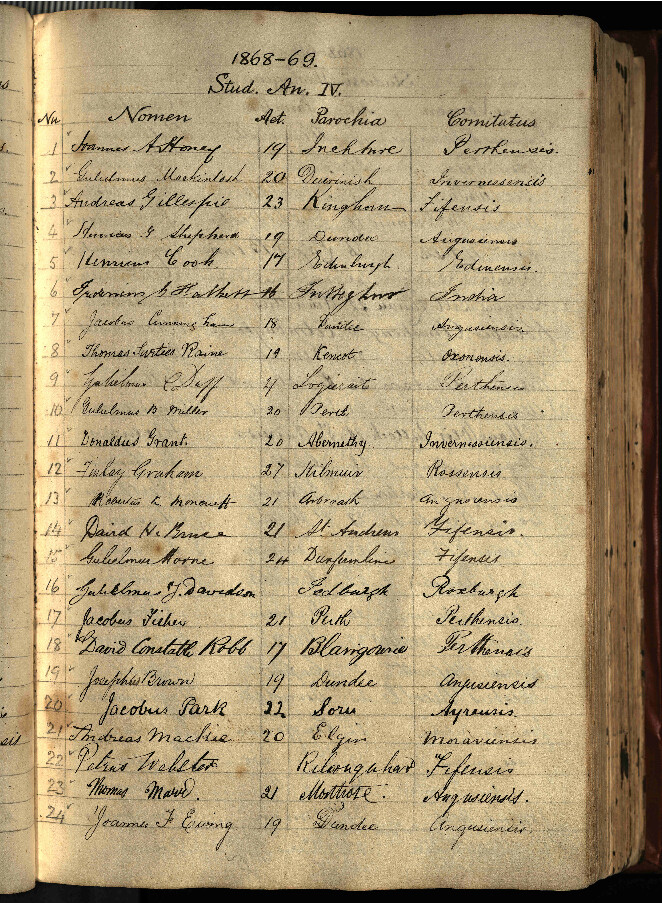 1868-69.
Stud. An. IV.
No Nomen Aet. Parochia Comitatus
1 Joannes A Honey 19 Inchture Perthensis.
2 Gulielmus Mackintosh 20 Duirinish Invernessensis
3 Andreas Gillespie 23 Kinghorn Fifensis
4 G Shepherd 19 Dundee Angusiensis
5 Henricus Cook 17 Edinburgh Edinensis.
6 G India
7 Jacobus Cunningham 18 Dundee Angusiensis
8 Thomas Surtees Raine 19 Kencot Oxonensis.
9 Gulielmus C. Duff 21 Logierait Perthensis
10 Gulielmus B Miller 20 Perth Perthensis
11 Donaldus Grant. 20 Abernethy. Invernessiensis.
12 Finlay Graham 27 Kilmuir Rossensis
13 Robertus K Moncrieff 21 Arbroath Angusiensis
14 David H. Bruce 21 St Andrews Fifensis.
15 Gulielmus Horne 24 Dunfermline Fifensis
16 Gulielmus J. Davidson Jedburgh Roxburgh
17 Jacobus Fisher 21 Perth Perthensis.
18 David Constable Robb 17 Blairgowrie Perthensis
19 Josephus Brown 19 Dundee Angusiensis
20 Jacobus Park 22 Sorn Ayrensis.
21 Andreas Mackie 20 Elgin Moraviensis
22 Petrus Webster Kilconquhar Fifensis
23 Thomas 21 Montrose. Angusiensis.
24 Joannes F Ewing 19 Dundee Angusiensis